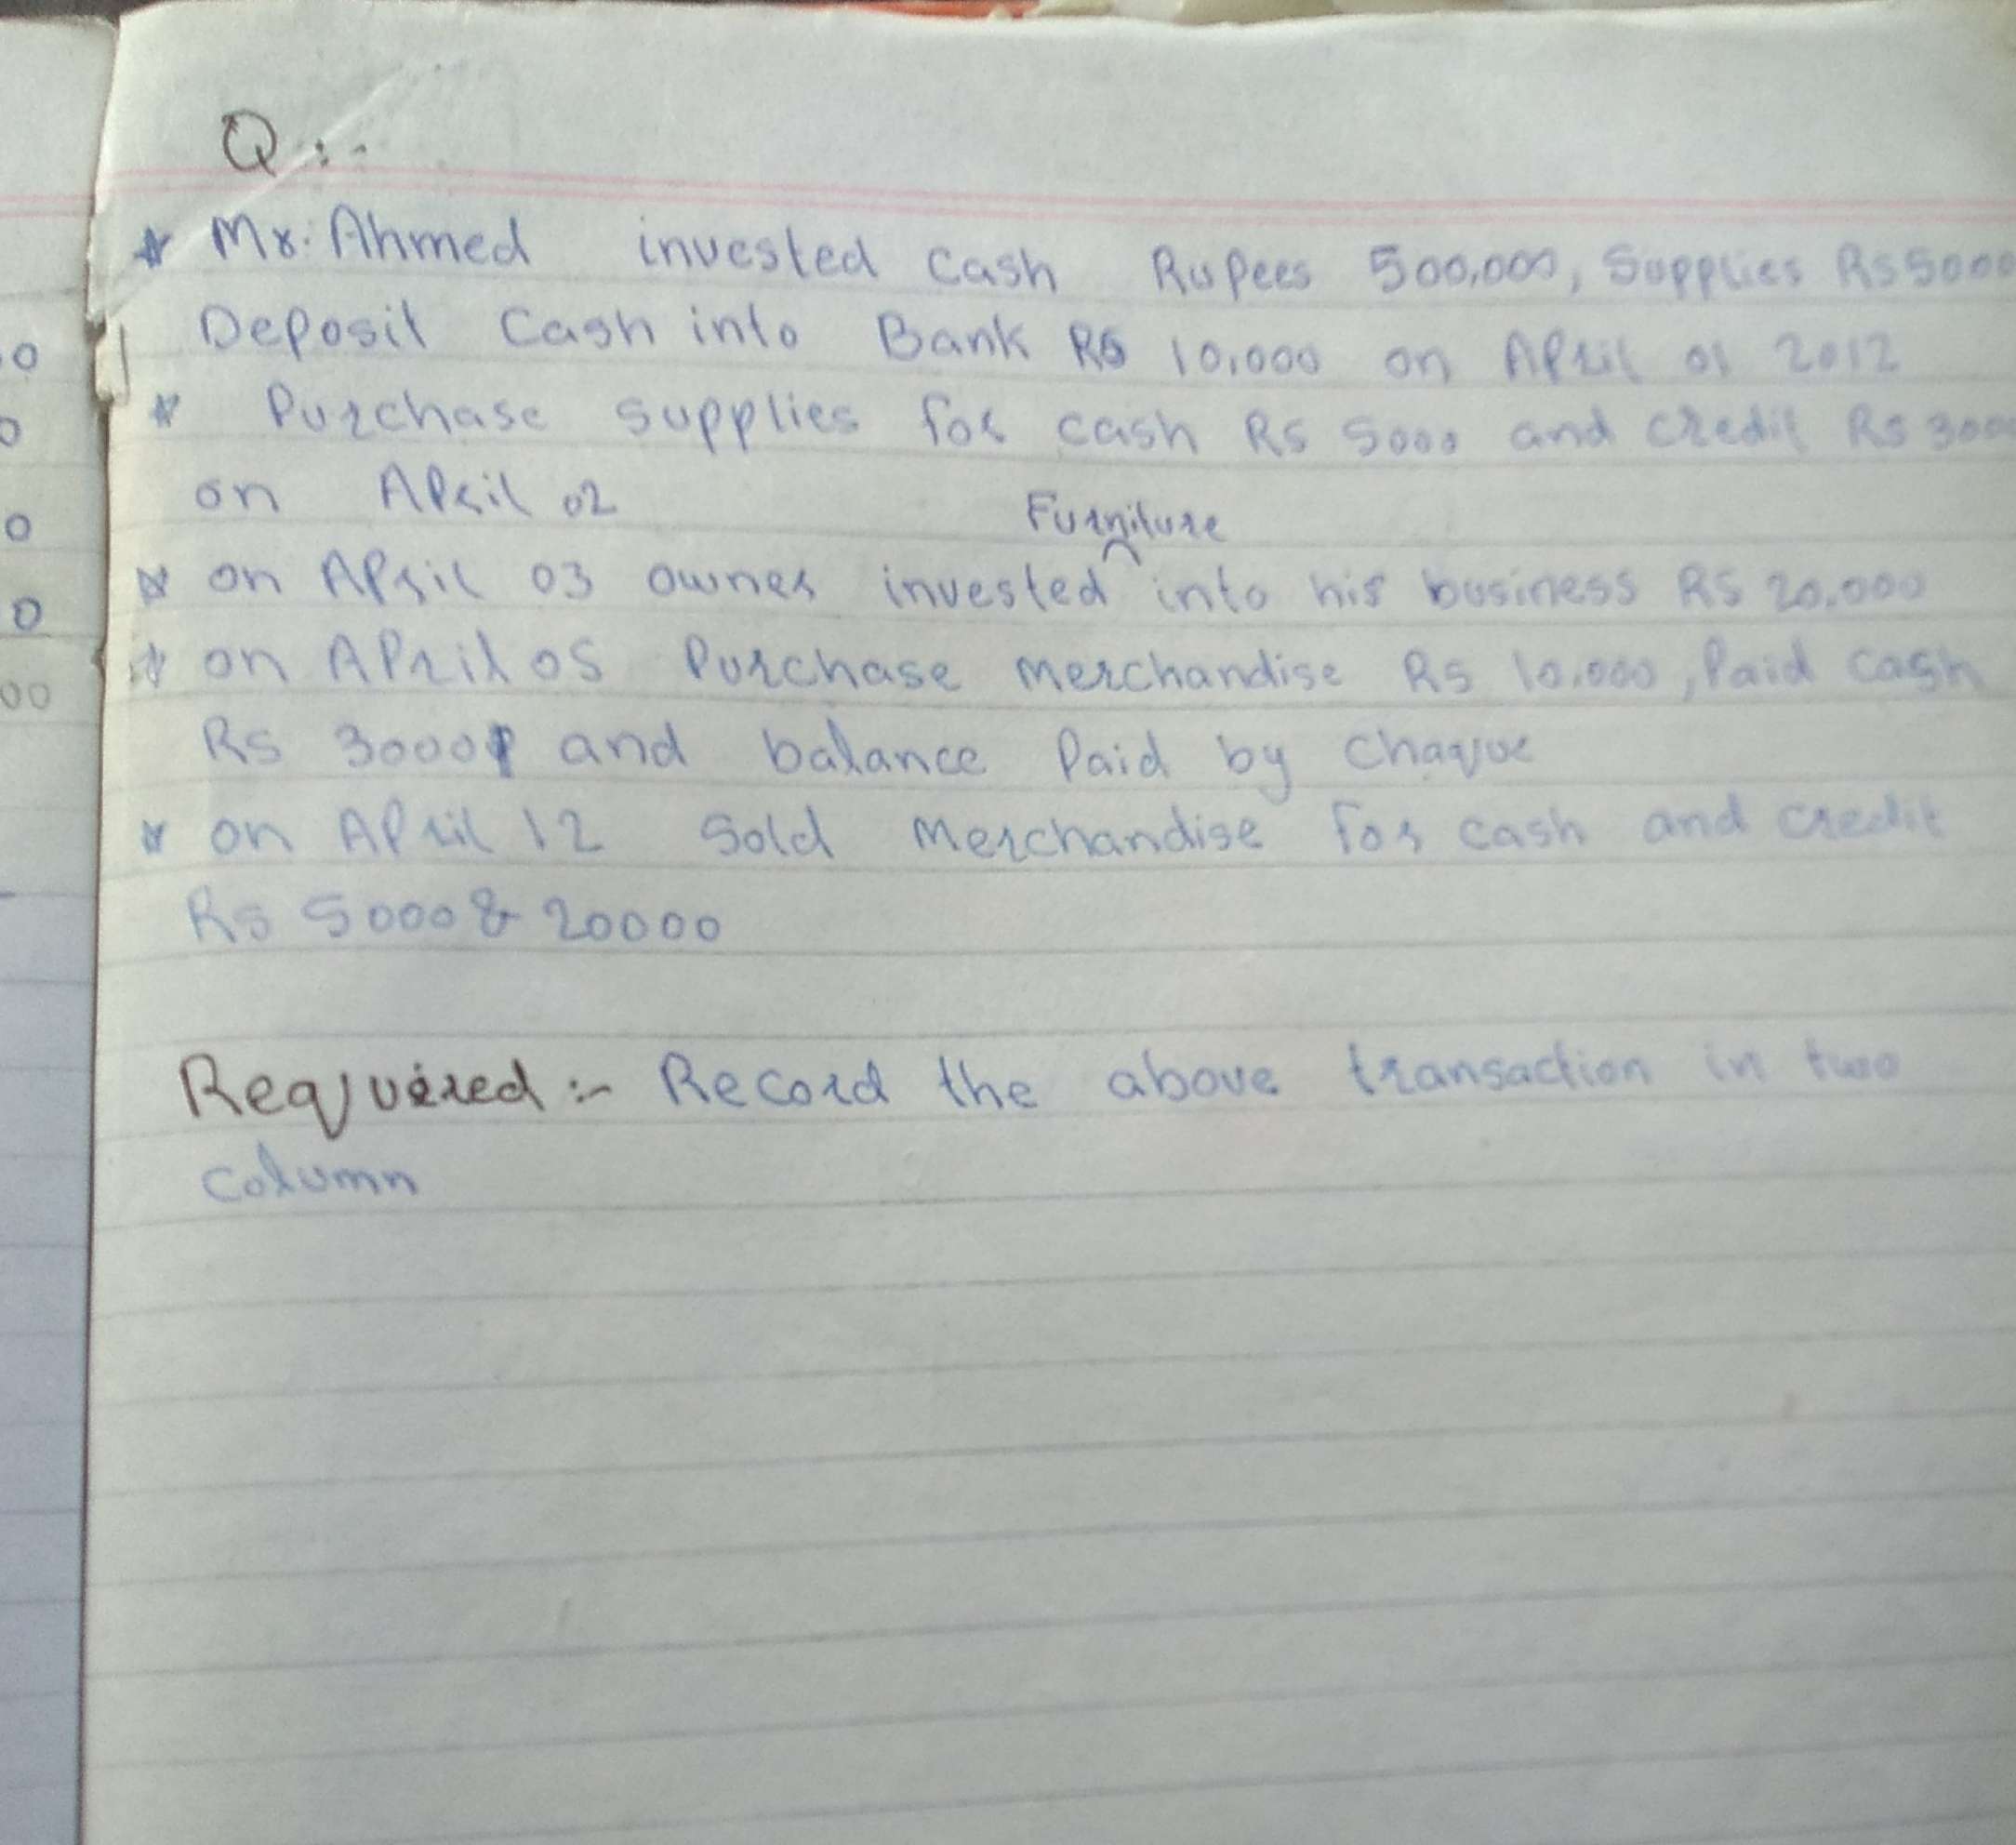 Q :-
* Mr. Ahmed invested Cash Rupees 500,000, Supplies Rs 5000
Deposit Cash into Bank RS 10,000 on April 01 2012
* Purchase supplies for cash Rs 5000 and credit Rs 3000
on April 02
Furniture
* on April 03 owner invested ^ into his business RS 20,000
* on April 05 Purchase merchandise Rs 10,000, Paid cash
Rs 3000 and balance Paid by Chaque
* on April 12 Sold Merchandise for cash and credit
Rs 5000 & 20000
Required :- Record the above transaction in two
column
0
0
0
0
00